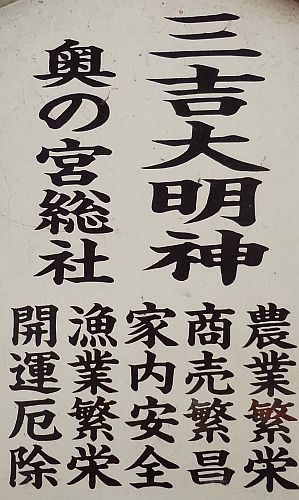 三吉大明神
奥の宮総社
農業繁栄
商売繁昌
家内安全
漁業繁栄
開運厄除